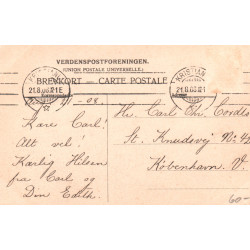 VERDENSPOSTFORENINGEN.
(UNION POSTALE UNIVERSELLE)
BREVKORT — CARTE POSTALE
KRISTIANIA
21.8.08.12
KRISTIAN
21.8.08.12
-08.
Kære Carl!
Alt vel!
Kærlig Hilsen
fra Carl og
Din Edith.
Hr. Carl Chr. Cordes
St. Knudsvej No 42
København. V.
60-